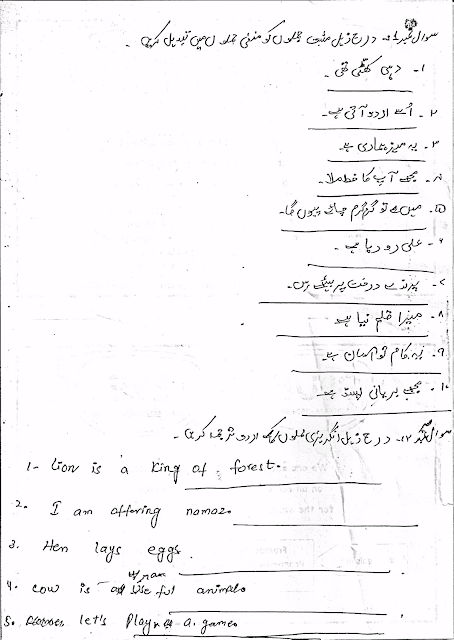 سوال نمبر درج ذیل مثبت جملوں کو منفی جملوں میں تبدیل کریں۔
۱۔ دہی کھٹی تھی۔
۲۔ اُسے اردو آتی ہے۔
۳۔ یہ میز ہماری ہے
۴۔ مجھے آپ کا خط ملا۔
۵۔ گرم چائے پیوں گا۔
۶۔ علی رو رہا ہے۔
۷۔ پرندے درخت پر بیٹھے ہیں۔
۸۔ میرا قلم نیا ہے
۹۔ یہ کام تو آسان ہے
۱۰۔ مجھے بریانی پسند ہے
سوال نمبر درج ذیل انگریزی جملوں کا اردو ترجمہ کریں۔
1- Lion is a king of forest.
2. I am offering namaz.
3. Hen lays eggs
4. Cow is useful animal.
5. let's Play a game